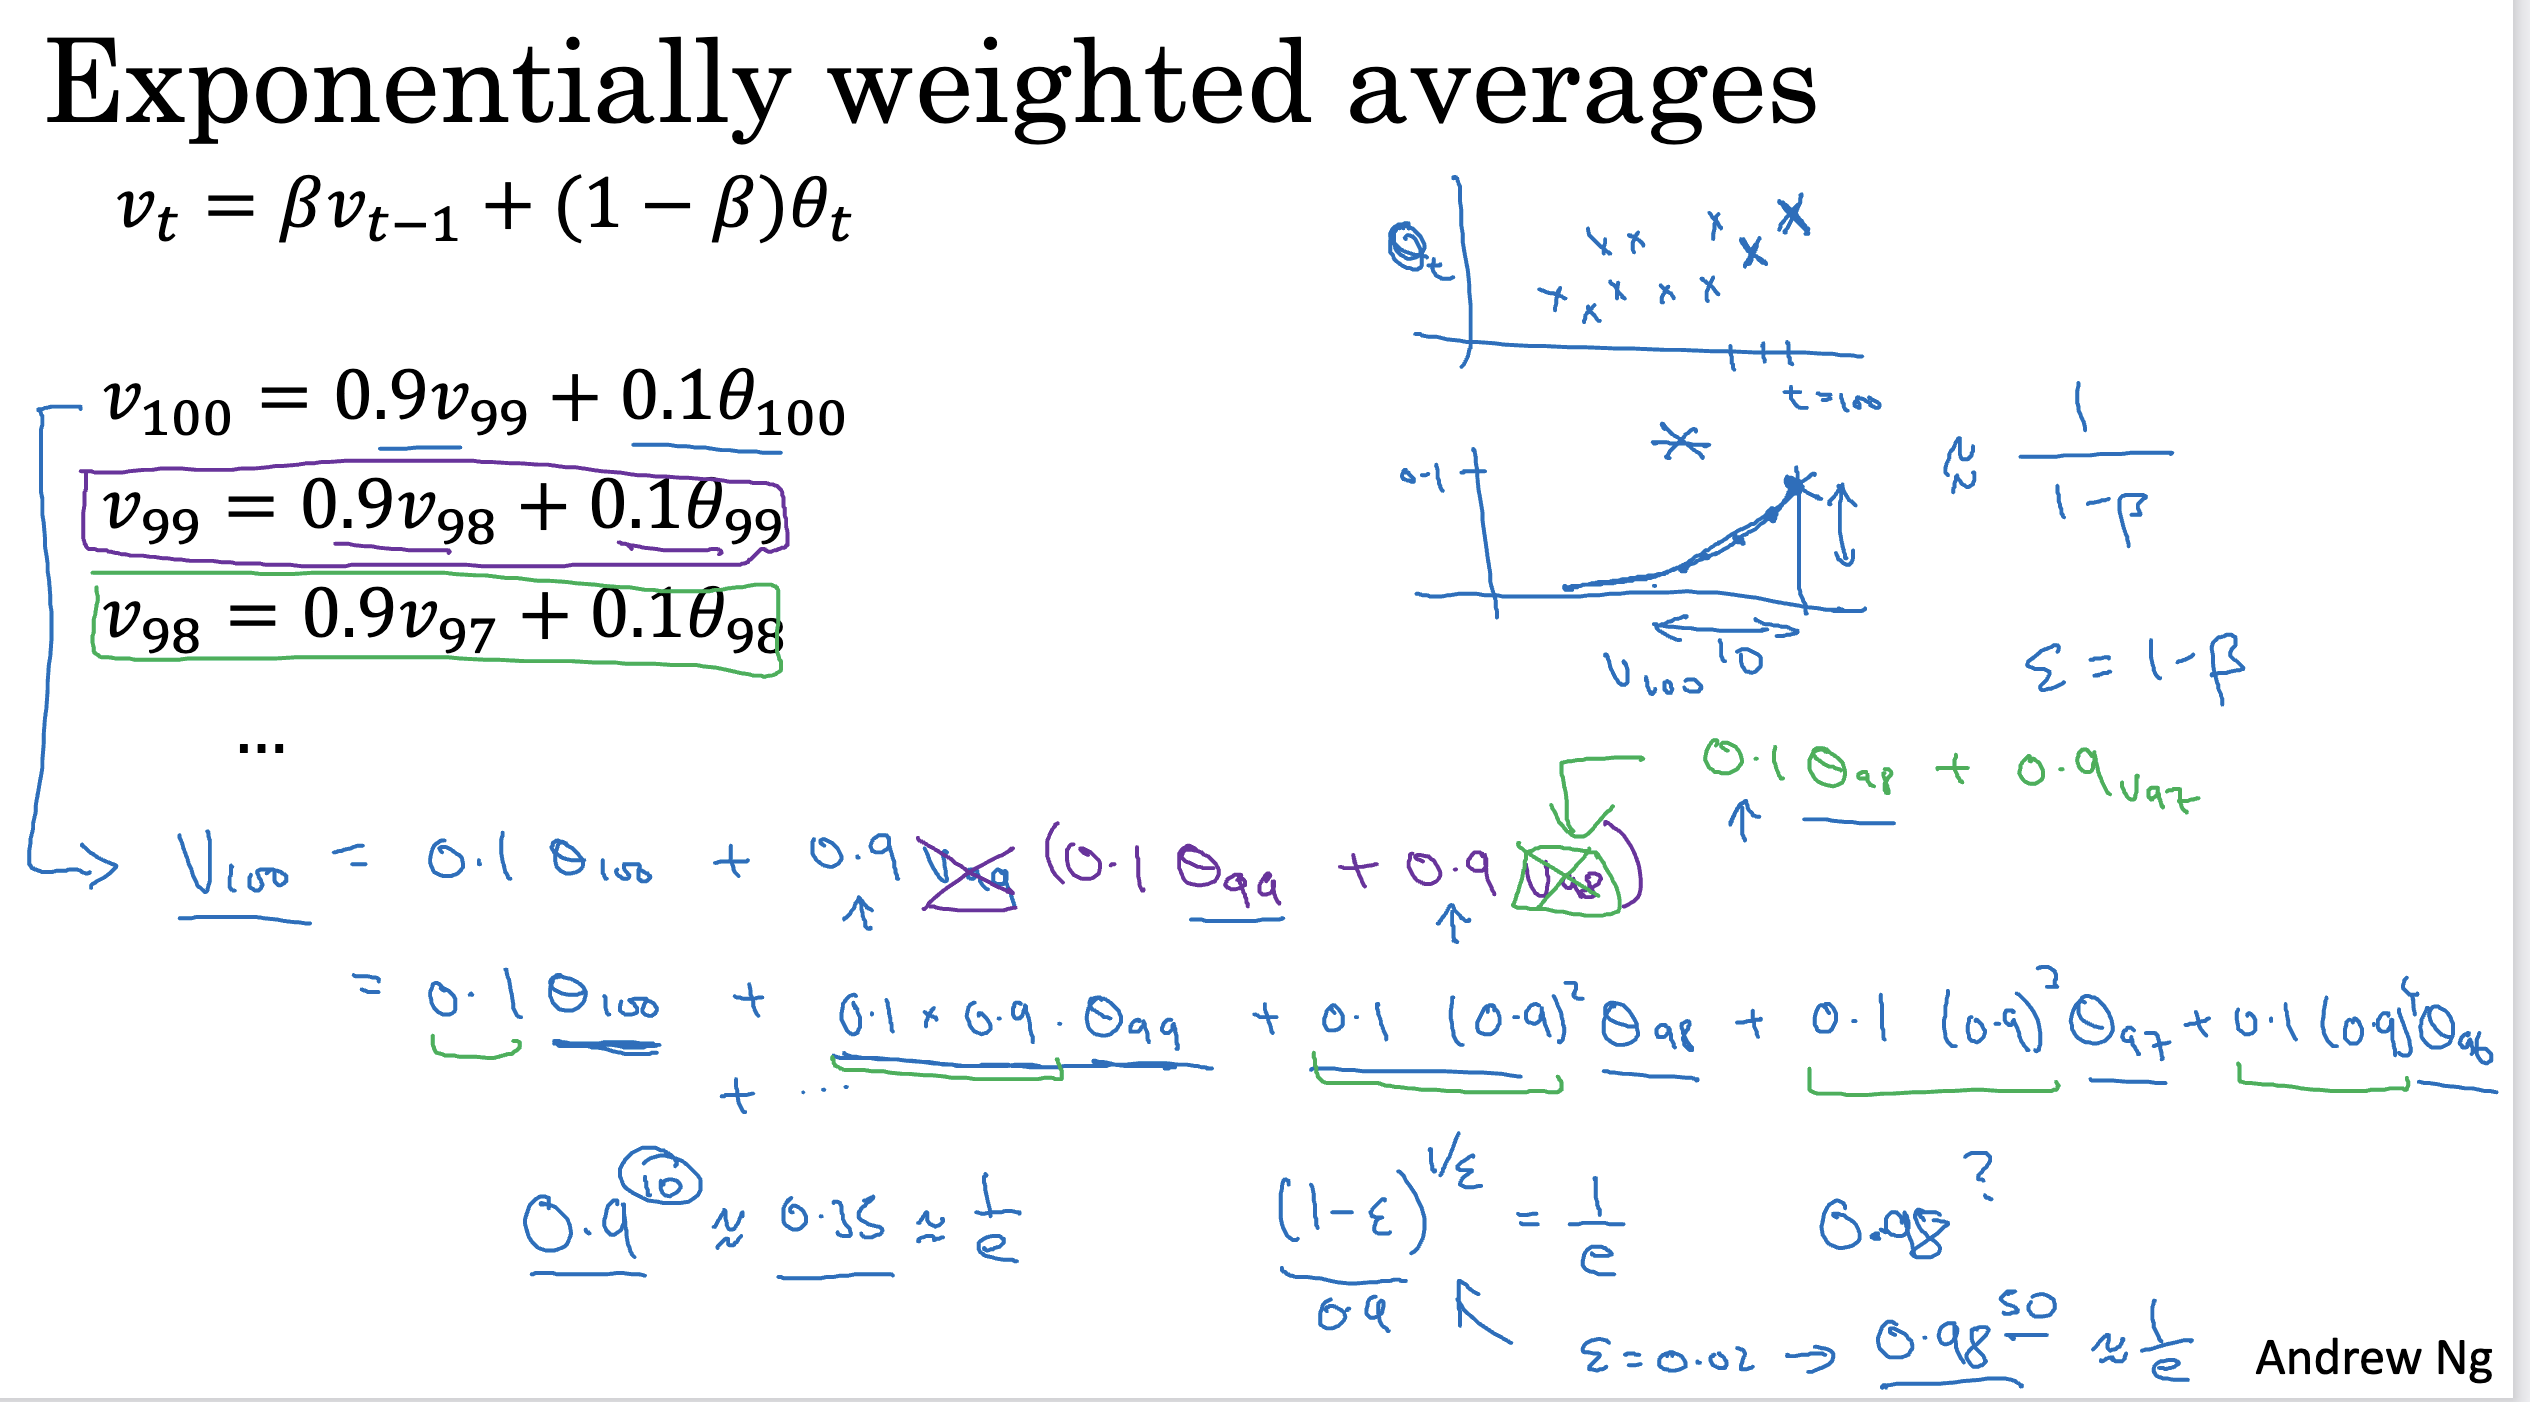 Exponentially weighted averages
v_t = βv_{t−1} + (1 − β)θ_t
θ_t
t = 100
v_100 = 0.9v_99 + 0.1θ_100
v_99 = 0.9v_98 + 0.1θ_99
v_98 = 0.9v_97 + 0.1θ_98
...
0.1
≈ 1/(1-β)
10
V_100
ε = 1-β
0.1 θ_98 + 0.9 V_97
V_100 = 0.1 θ_100 + 0.9 V_99 (0.1 θ_99 + 0.9 V_98)
= 0.1 θ_100 + 0.1 × 0.9 · θ_99 + 0.1 (0.9)² θ_98 + 0.1 (0.9)³ θ_97 + 0.1 (0.9)⁴ θ_96
+ ...
0.9^10 ≈ 0.35 ≈ 1/e
(1-ε)^{1/ε} = 1/e
0.9
0.98^?
ε = 0.02 → 0.98^50 ≈ 1/e
Andrew Ng